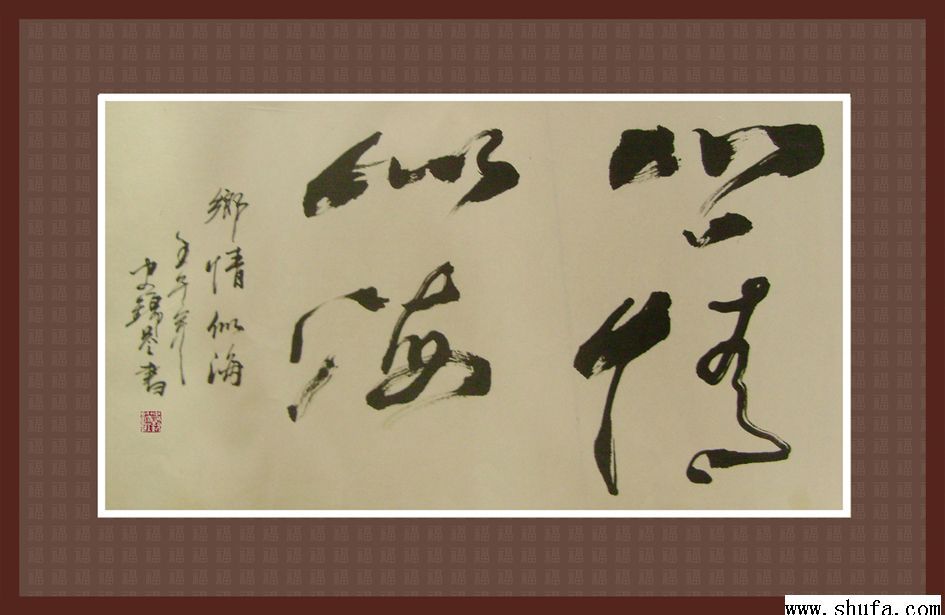 鄉情
似海
鄉情似海
壬午年
書
www.shufa.com